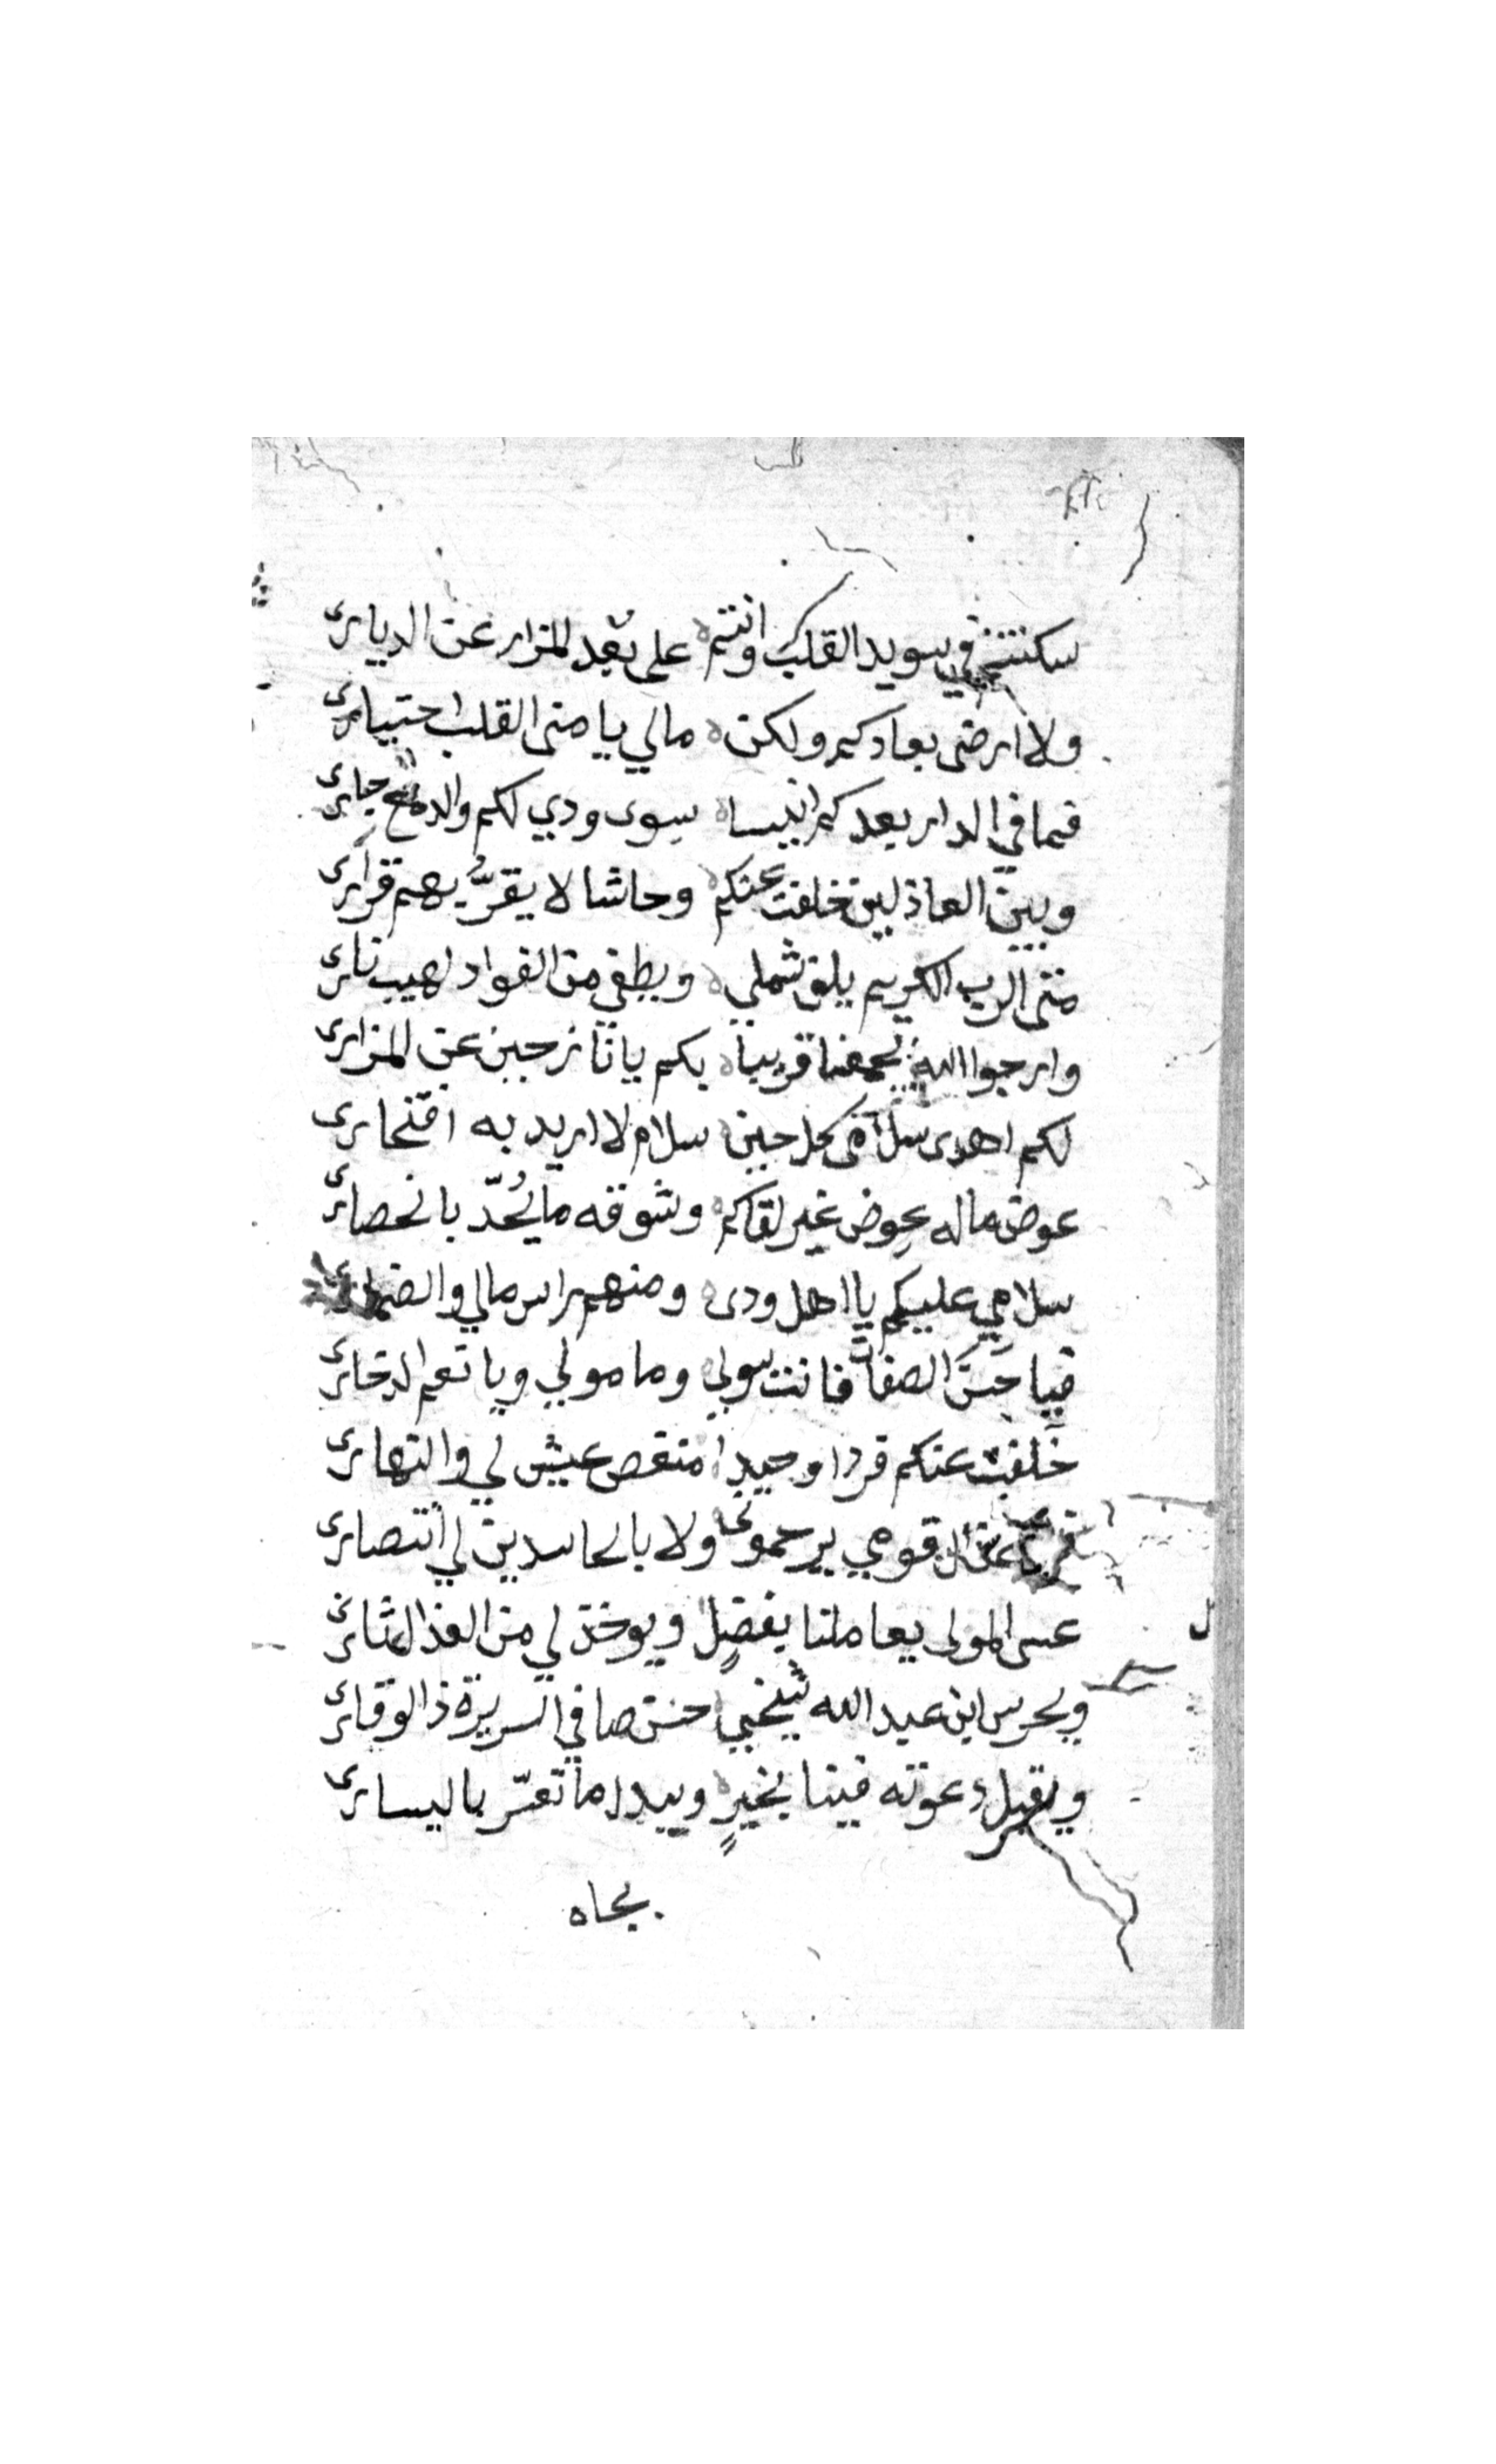 سكنتم في سويد القلب وانتم ه على بُعد المزار عن الدياري
ولا ارضى بعادكم ولكن ه مالي يا منى القلب اختياري
فما في الدار بعدكم انيسا ه سوى ودي لكم والدمع جاري
وبين العاذلين خلفت عنكم ه وحاشا لا يقرّ بهم قراري
متى الرب الكريم يلف شملي ه ويطفي من الفواد لهيب ناري
وارجوا الله يجمعنا قريبا ه بكم يا نازحين عن المزاري
لكم اهدى سلامى كل حين ه سلام لا اريد به افتخاري
عوض ماله عِوض غير لقاكم ه وشوقه ما يُحدّ بانحصاري
سلامي عليكم يا اهل ودى ه ومنهم راس مالي
فيا حَسَن الصفات فانت سولي ه ومامولي ويا نعم الدخاري
خلفت عنكم فردا وحيدا منغص عيش لي والنهاري
قومي يرحموني ولا بالحاسدين لي انتصاري
عسى المولى يعاملنا بفضلٍ ويوخذ لي من العذال ثاري
ويحرس ابن عبد الله شيخي ه حسن صافي السريرة ذا الوقاري
ويقبل دعوته فينا بخيرٍ ه ويبدل ما تعسّر باليساري
بجاه